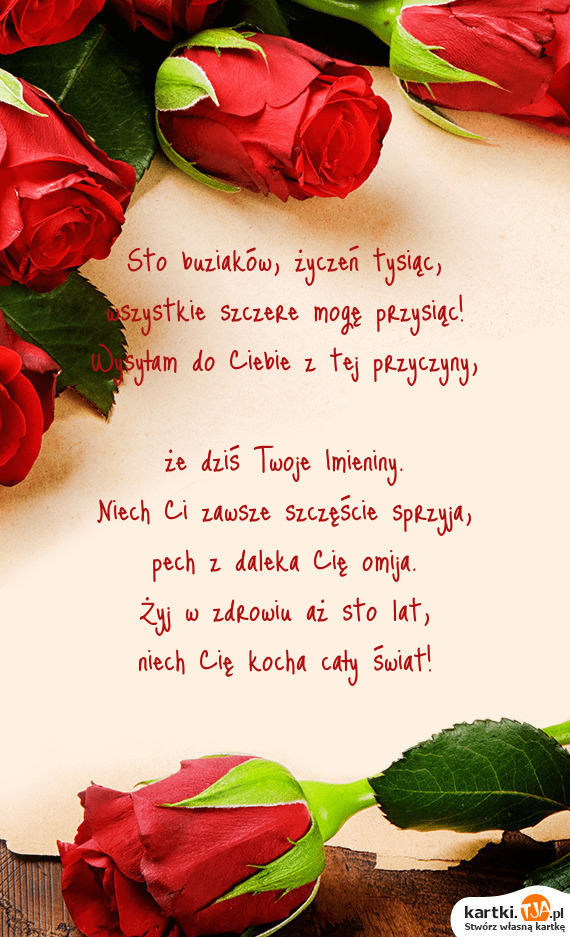 Sto buziaków, życzeń tysiąc,
wszystkie szczere mogę przysiąc!
Wysyłam do Ciebie z tej przyczyny,
że dziś Twoje Imieniny.
Niech Ci zawsze szczęście sprzyja,
pech z daleka Cię omija.
Żyj w zdrowiu aż sto lat,
niech Cię kocha cały świat!
kartki.TJA.pl
Stwórz własną kartkę